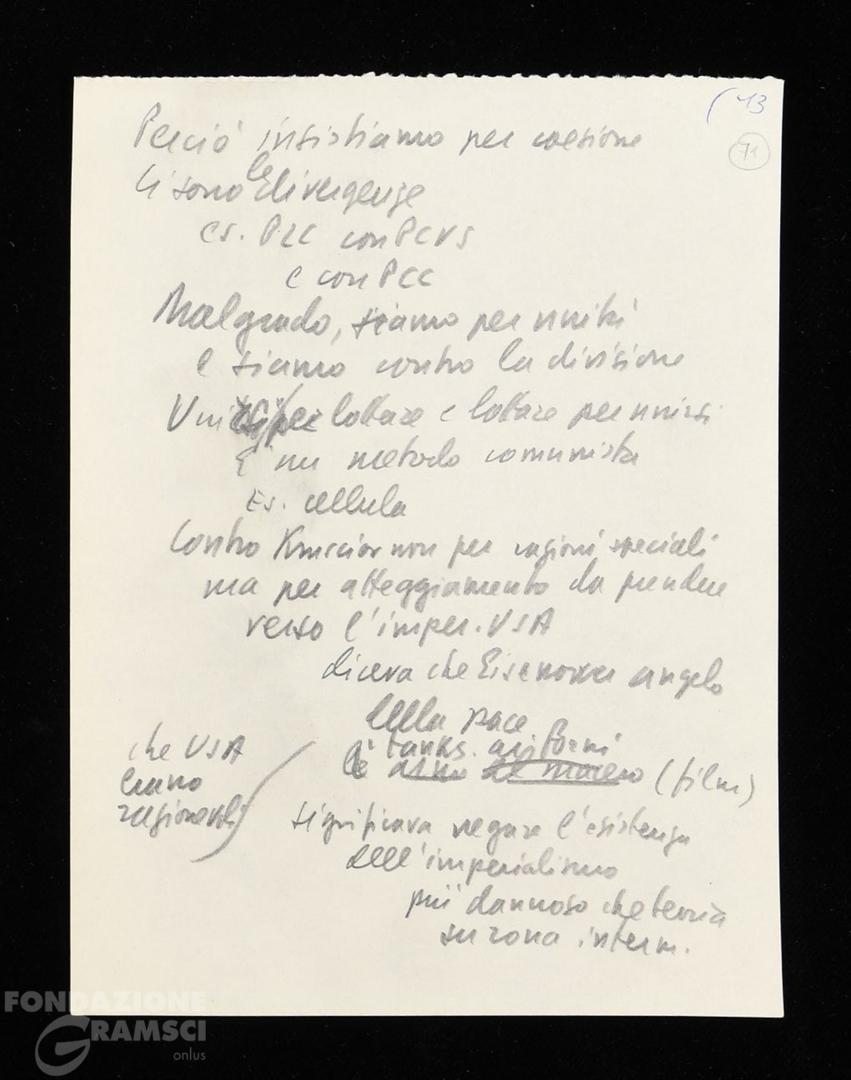 ( 43
71
Perciò insistiamo per coesione
Ci sono le divergenze
es. PLC con PCUS
e con PCC
Malgrado, siamo per unità
e siamo contro la divisione
per lottare e lottare per unirsi
È un metodo comunista
Es. cellula
Contro Krusciov non per ragioni speciali
ma per atteggiamento da prendere
verso l'imper. USA
diceva che Eisenower angelo
della pace
tanks. (film)
che USA
erano
ragionevoli
significava negare l'esistenza
dell'imperialismo
più dannoso che teoria
su zona interm.
FONDAZIONE
GRAMSCI
onlus